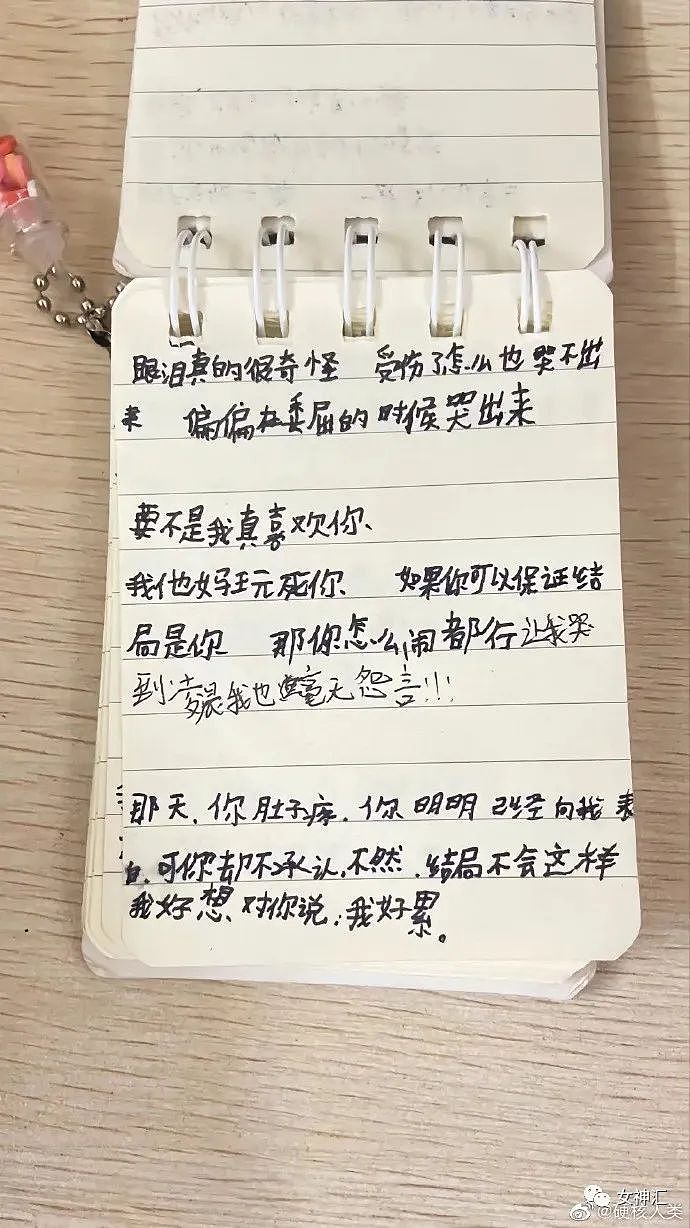 眼泪真的很奇怪 受伤了怎么也哭不出
来 偏偏在委屈的时候哭出来
要不是我真喜欢你、
我他妈玩死你、 如果你可以保证结
局是你 那你怎么闹都行让我哭
到凌晨我也毫无怨言!!!
那天、你肚子疼、你明明已经向我表
白、可你却不承认,不然、结局不会这样
我好想对你说:我好累。
女神汇
@硬核人类